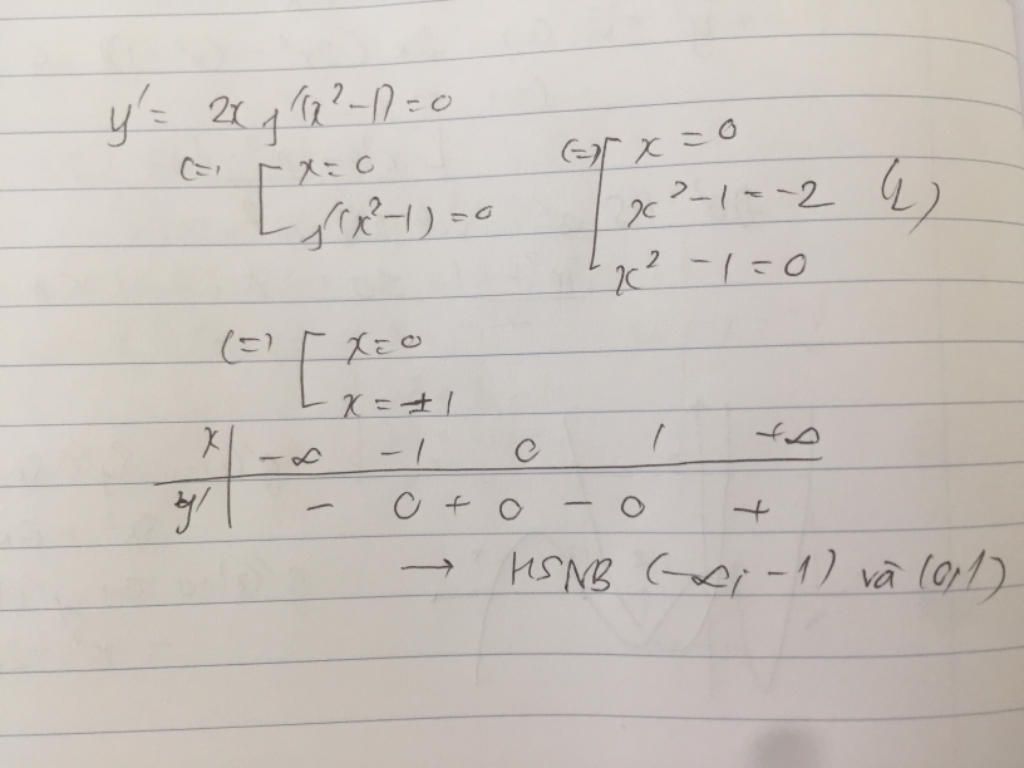 y' = 2x f'(x² - 1) = 0
(=) [ x = 0
f'(x² - 1) = 0
(=) [ x = 0
x² - 1 = -2 (L)
x² - 1 = 0
(=) [ x = 0
x = ±1
x | -∞ -1 0 1 +∞
y' | - 0 + 0 - 0 +
→ HSNB (-∞; -1) và (0,1)